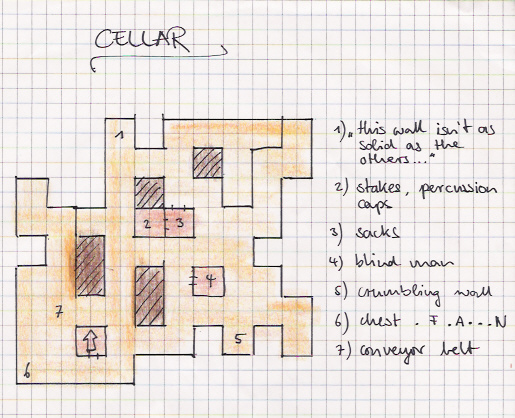 CELLAR
1
2
3
4
5
6
7
1) "this wall isn't as
solid as the
others..."
2) stakes, percussion
caps
3) sacks
4) blind man
5) crumbling wall
6) chest . F . A . . . N
7) conveyor belt